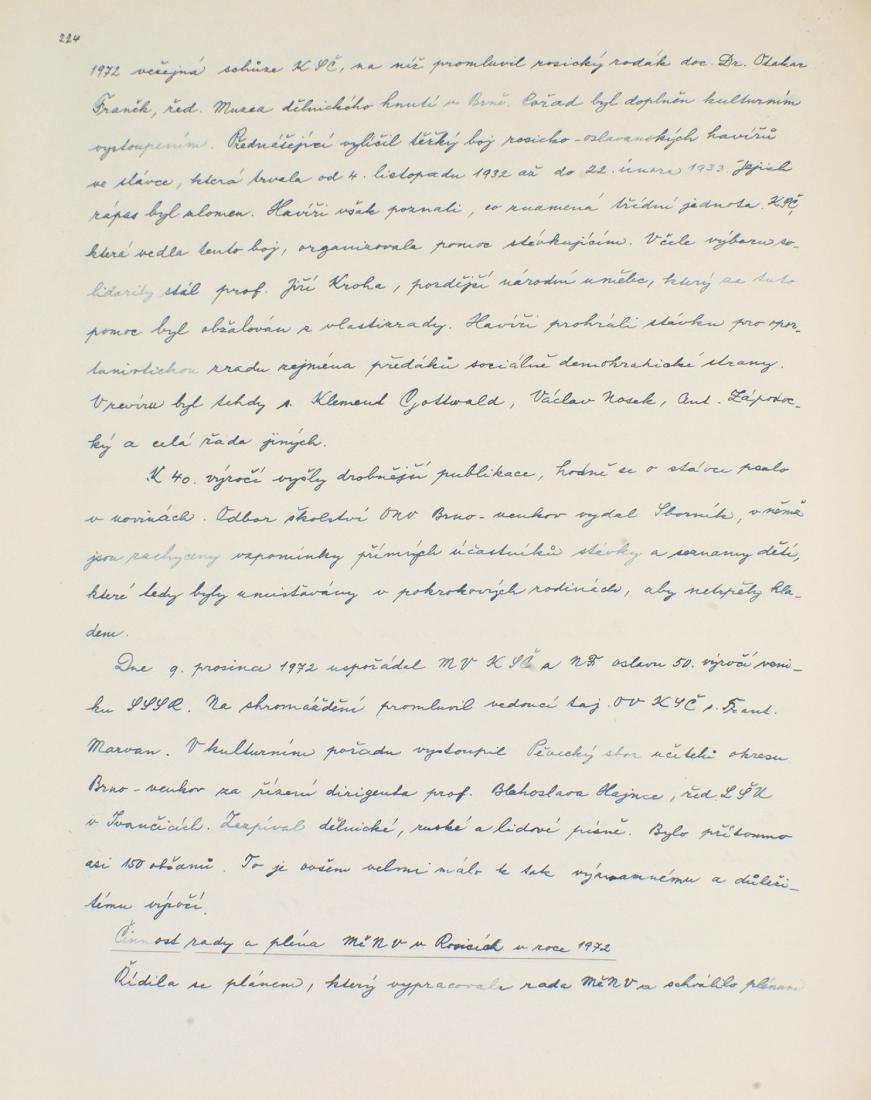 224
1972 veřejná schůze KSČ, na níž promluvil rosický rodák doc. Dr. Otakar
Franěk, řed. Muzea dělnického hnutí v Brně. Pořad byl doplněn kulturním
vystoupením. Přednášející vylíčil těžký boj rosicko-oslavanských havířů
ve stávce, která trvala od 4. listopadu 1932 až do 22. února 1933. Jejich
zápas byl zlomen. Havíři však poznali, co znamená třídní jednota. KSČ,
která vedla tento boj, organizovala pomoc stávkujícím. V čele výboru so-
lidarity stál prof. Jiří Kroha, pozdější národní umělec, který za tuto
pomoc byl obžalován z vlastizrady. Havíři prohráli stávku pro opor-
tunistickou zradu zejména předáků sociálně demokratické strany.
V revíru byl tehdy s. Klement Gottwald, Václav Nosek, Ant. Zápotoc-
ký a celá řada jiných.
K 40. výročí vyšly drobnější publikace, hodně se o stávce psalo
v novinách. Odbor školství ONV Brno-venkov vydal Sborník, v němž
jsou zachyceny vzpomínky přímých účastníků stávky a seznamy dětí,
které tedy byly umisťovány v pokrokových rodinách, aby netrpěly hla-
dem.
Dne 9. prosince 1972 uspořádal MV KSČ a NF oslavu 50. výročí vzni-
ku SSSR. Na shromáždění promluvil vedoucí taj. OV KSČ s. Frant.
Marvan. V kulturním pořadu vystoupil Pěvecký sbor učitelů okresu
Brno-venkov za řízení dirigenta prof. Blahoslava Hajnce, řed. LŠU
v Ivančicích. Zazpíval dělnické, ruské a lidové písně. Bylo přítomno
asi 150 občanů. To je ovšem velmi málo k tak významnému a důleži-
tému výročí.
Činnost rady a pléna MěNV v Rosicích v roce 1972
Řídila se plánem, který vypracovala rada MěNV a schválilo plénum